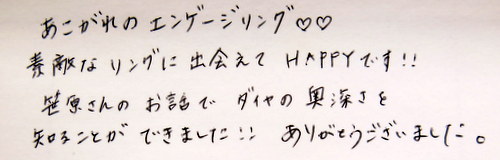 あこがれの エンゲージリング♡♡
素敵な リングに 出会えて HAPPYです!!
笹原さんの お話で ダイヤの 奥深さを
知ることが できました!! ありがとうございました。